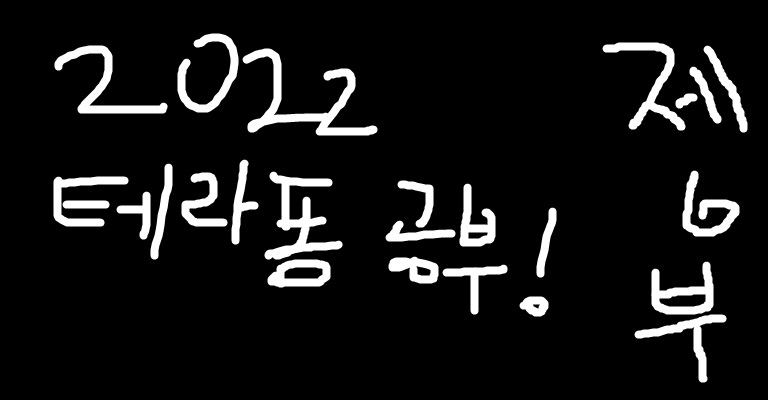 2022
테라폼 공부!
제
6
부